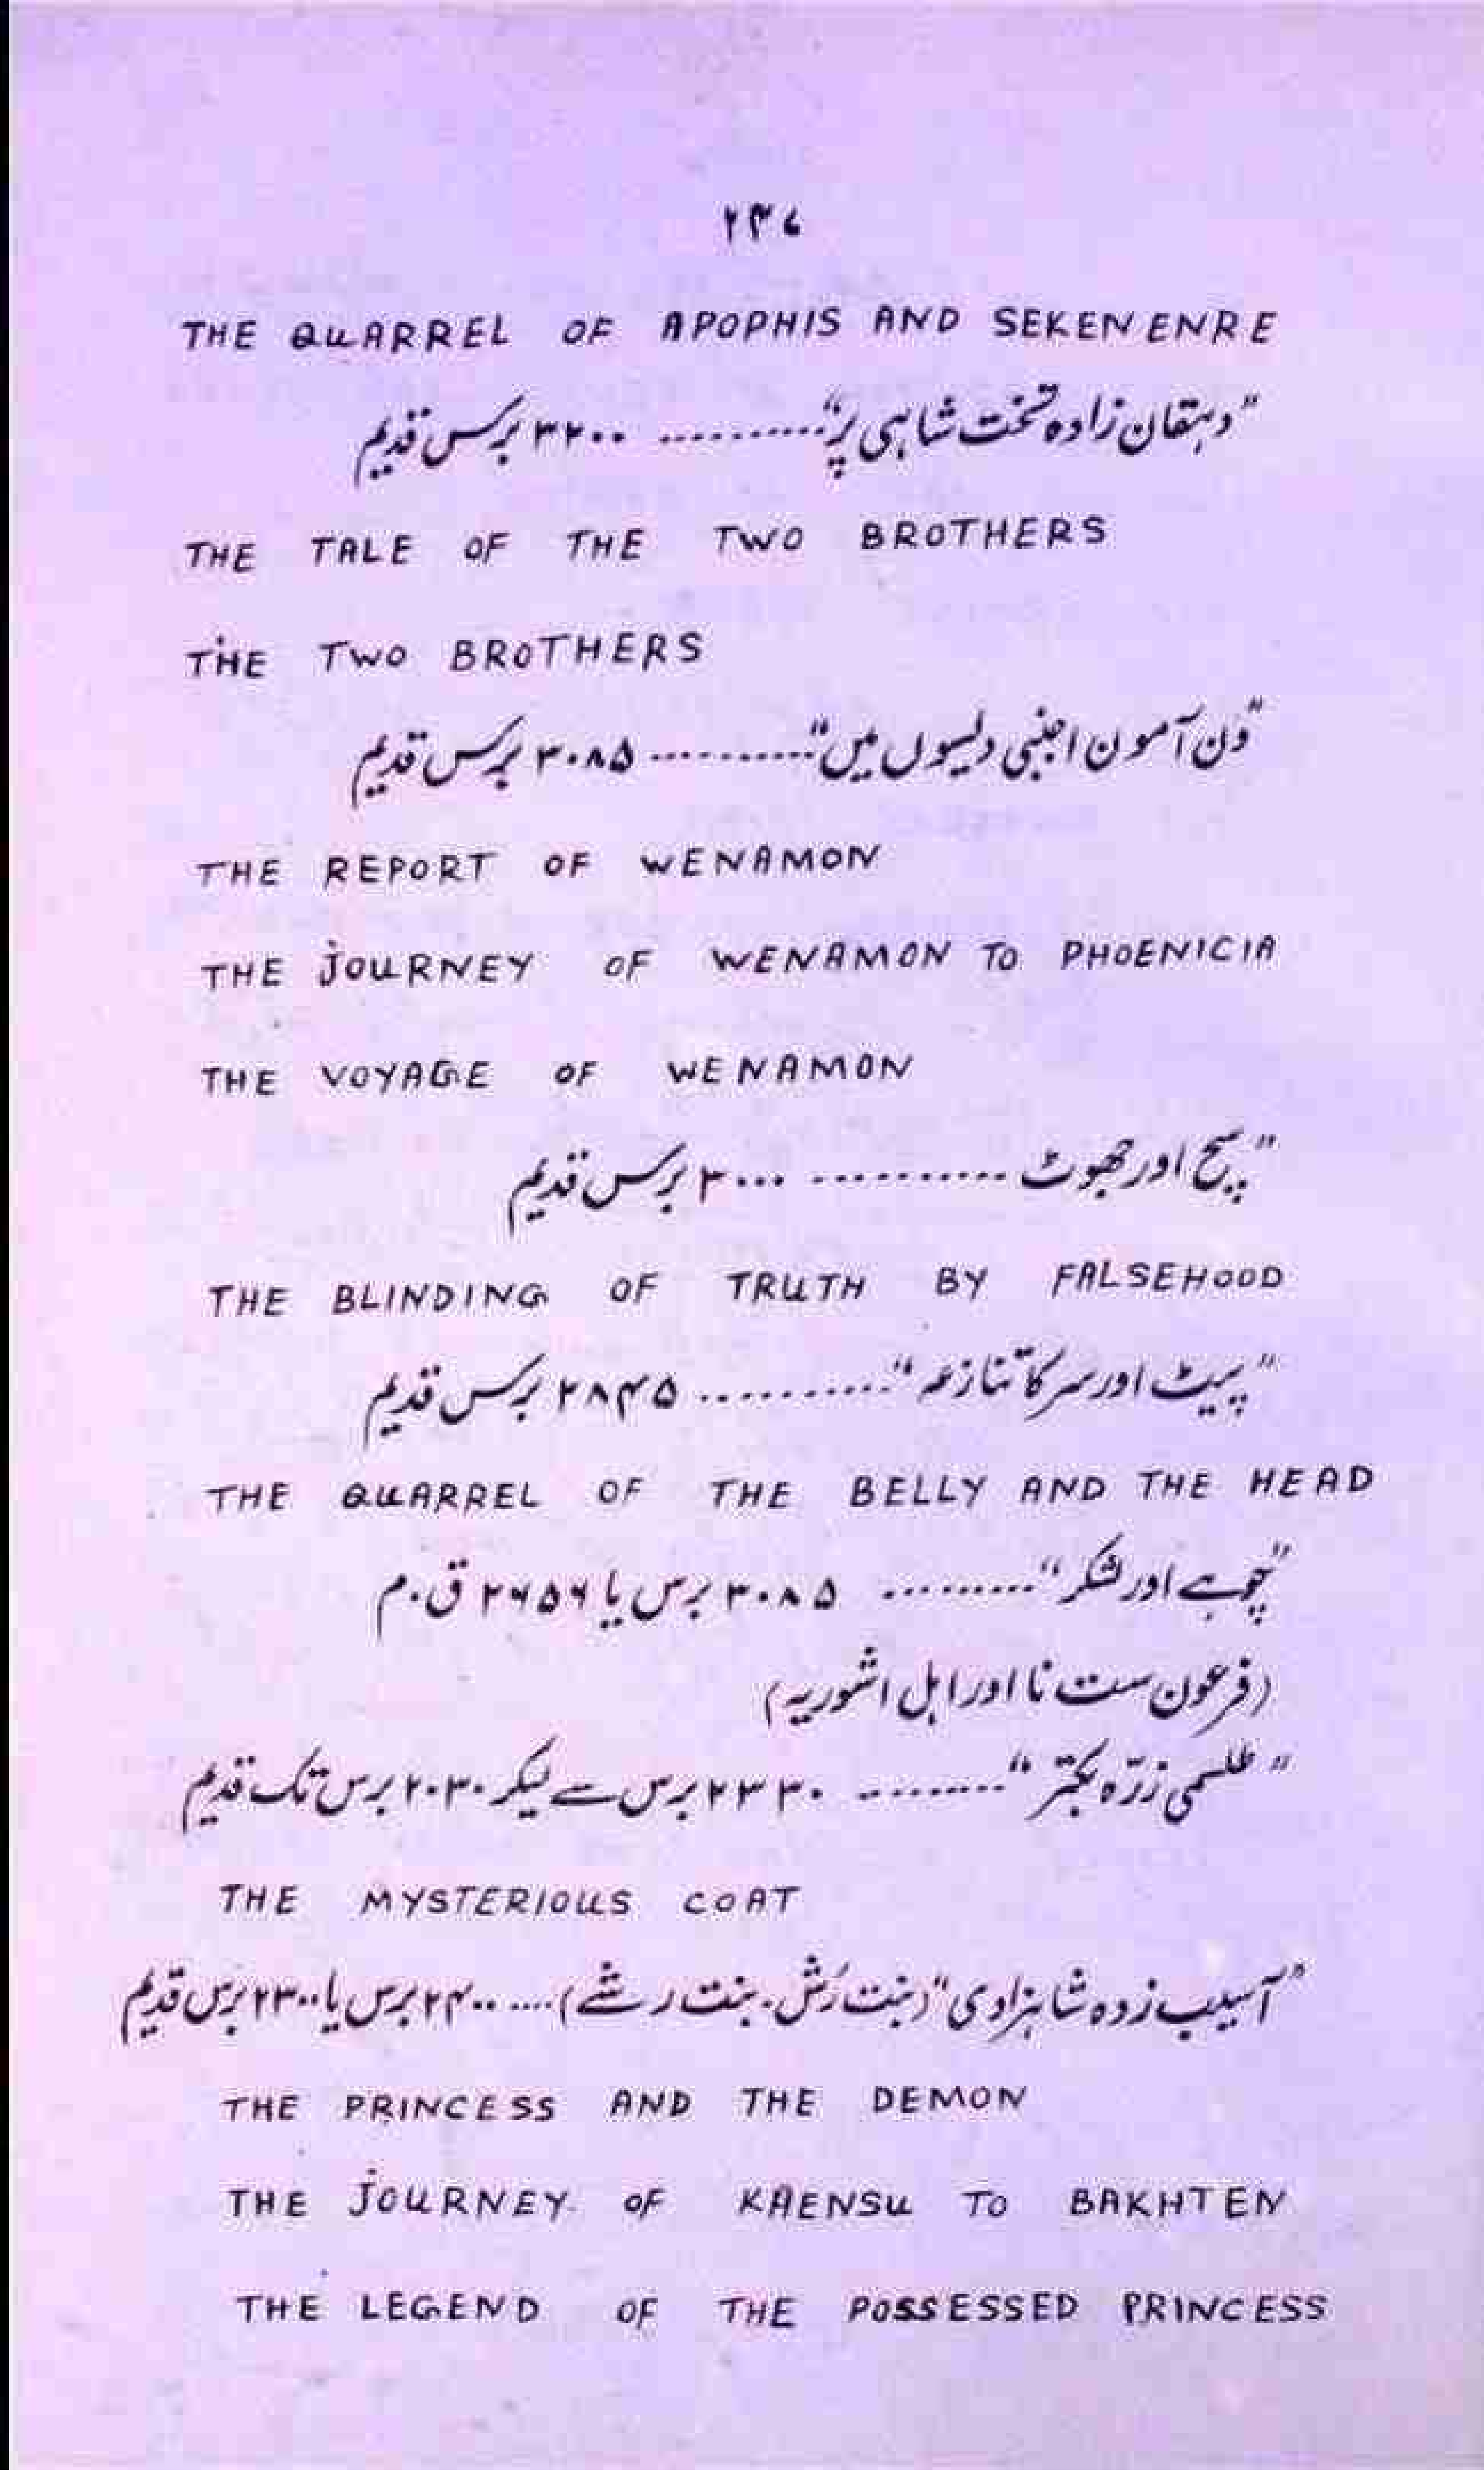 ۲۳۷
THE QUARREL OF APOPHIS AND SEKENENRE
"دہقان زادہ تخت شاہی پر" .......... ۳۲۰۰ برس قدیم
THE TALE OF THE TWO BROTHERS
THE TWO BROTHERS
"ون آمون اجنبی دیسوں میں" .......... ۳۰۸۵ برس قدیم
THE REPORT OF WENAMON
THE JOURNEY OF WENAMON TO PHOENICIA
THE VOYAGE OF WENAMON
"سچ اور جھوٹ .......... ۳۰۰۰ برس قدیم
THE BLINDING OF TRUTH BY FALSEHOOD
"پیٹ اور سر کا تنازعہ" .......... ۲۸۴۵ برس قدیم
THE QUARREL OF THE BELLY AND THE HEAD
"چوہے اور لشکر" ......... ۳۰۸۵ برس یا ۲۶۵۶ ق.م
(فرعون ست نا اور اہل اشوریہ)
"طلسمی زرّہ بکتر" ......... ۲۳۳۰ برس سے لیکر ۲۰۳۰ برس تک قدیم
THE MYSTERIOUS COAT
"آسیب زدہ شاہزادی" (بنت رَش۔ بنت رشے) ..... ۲۴۰۰ برس یا ۲۳۰۰ برس قدیم
THE PRINCESS AND THE DEMON
THE JOURNEY OF KHENSU TO BAKHTEN
THE LEGEND OF THE POSSESSED PRINCESS